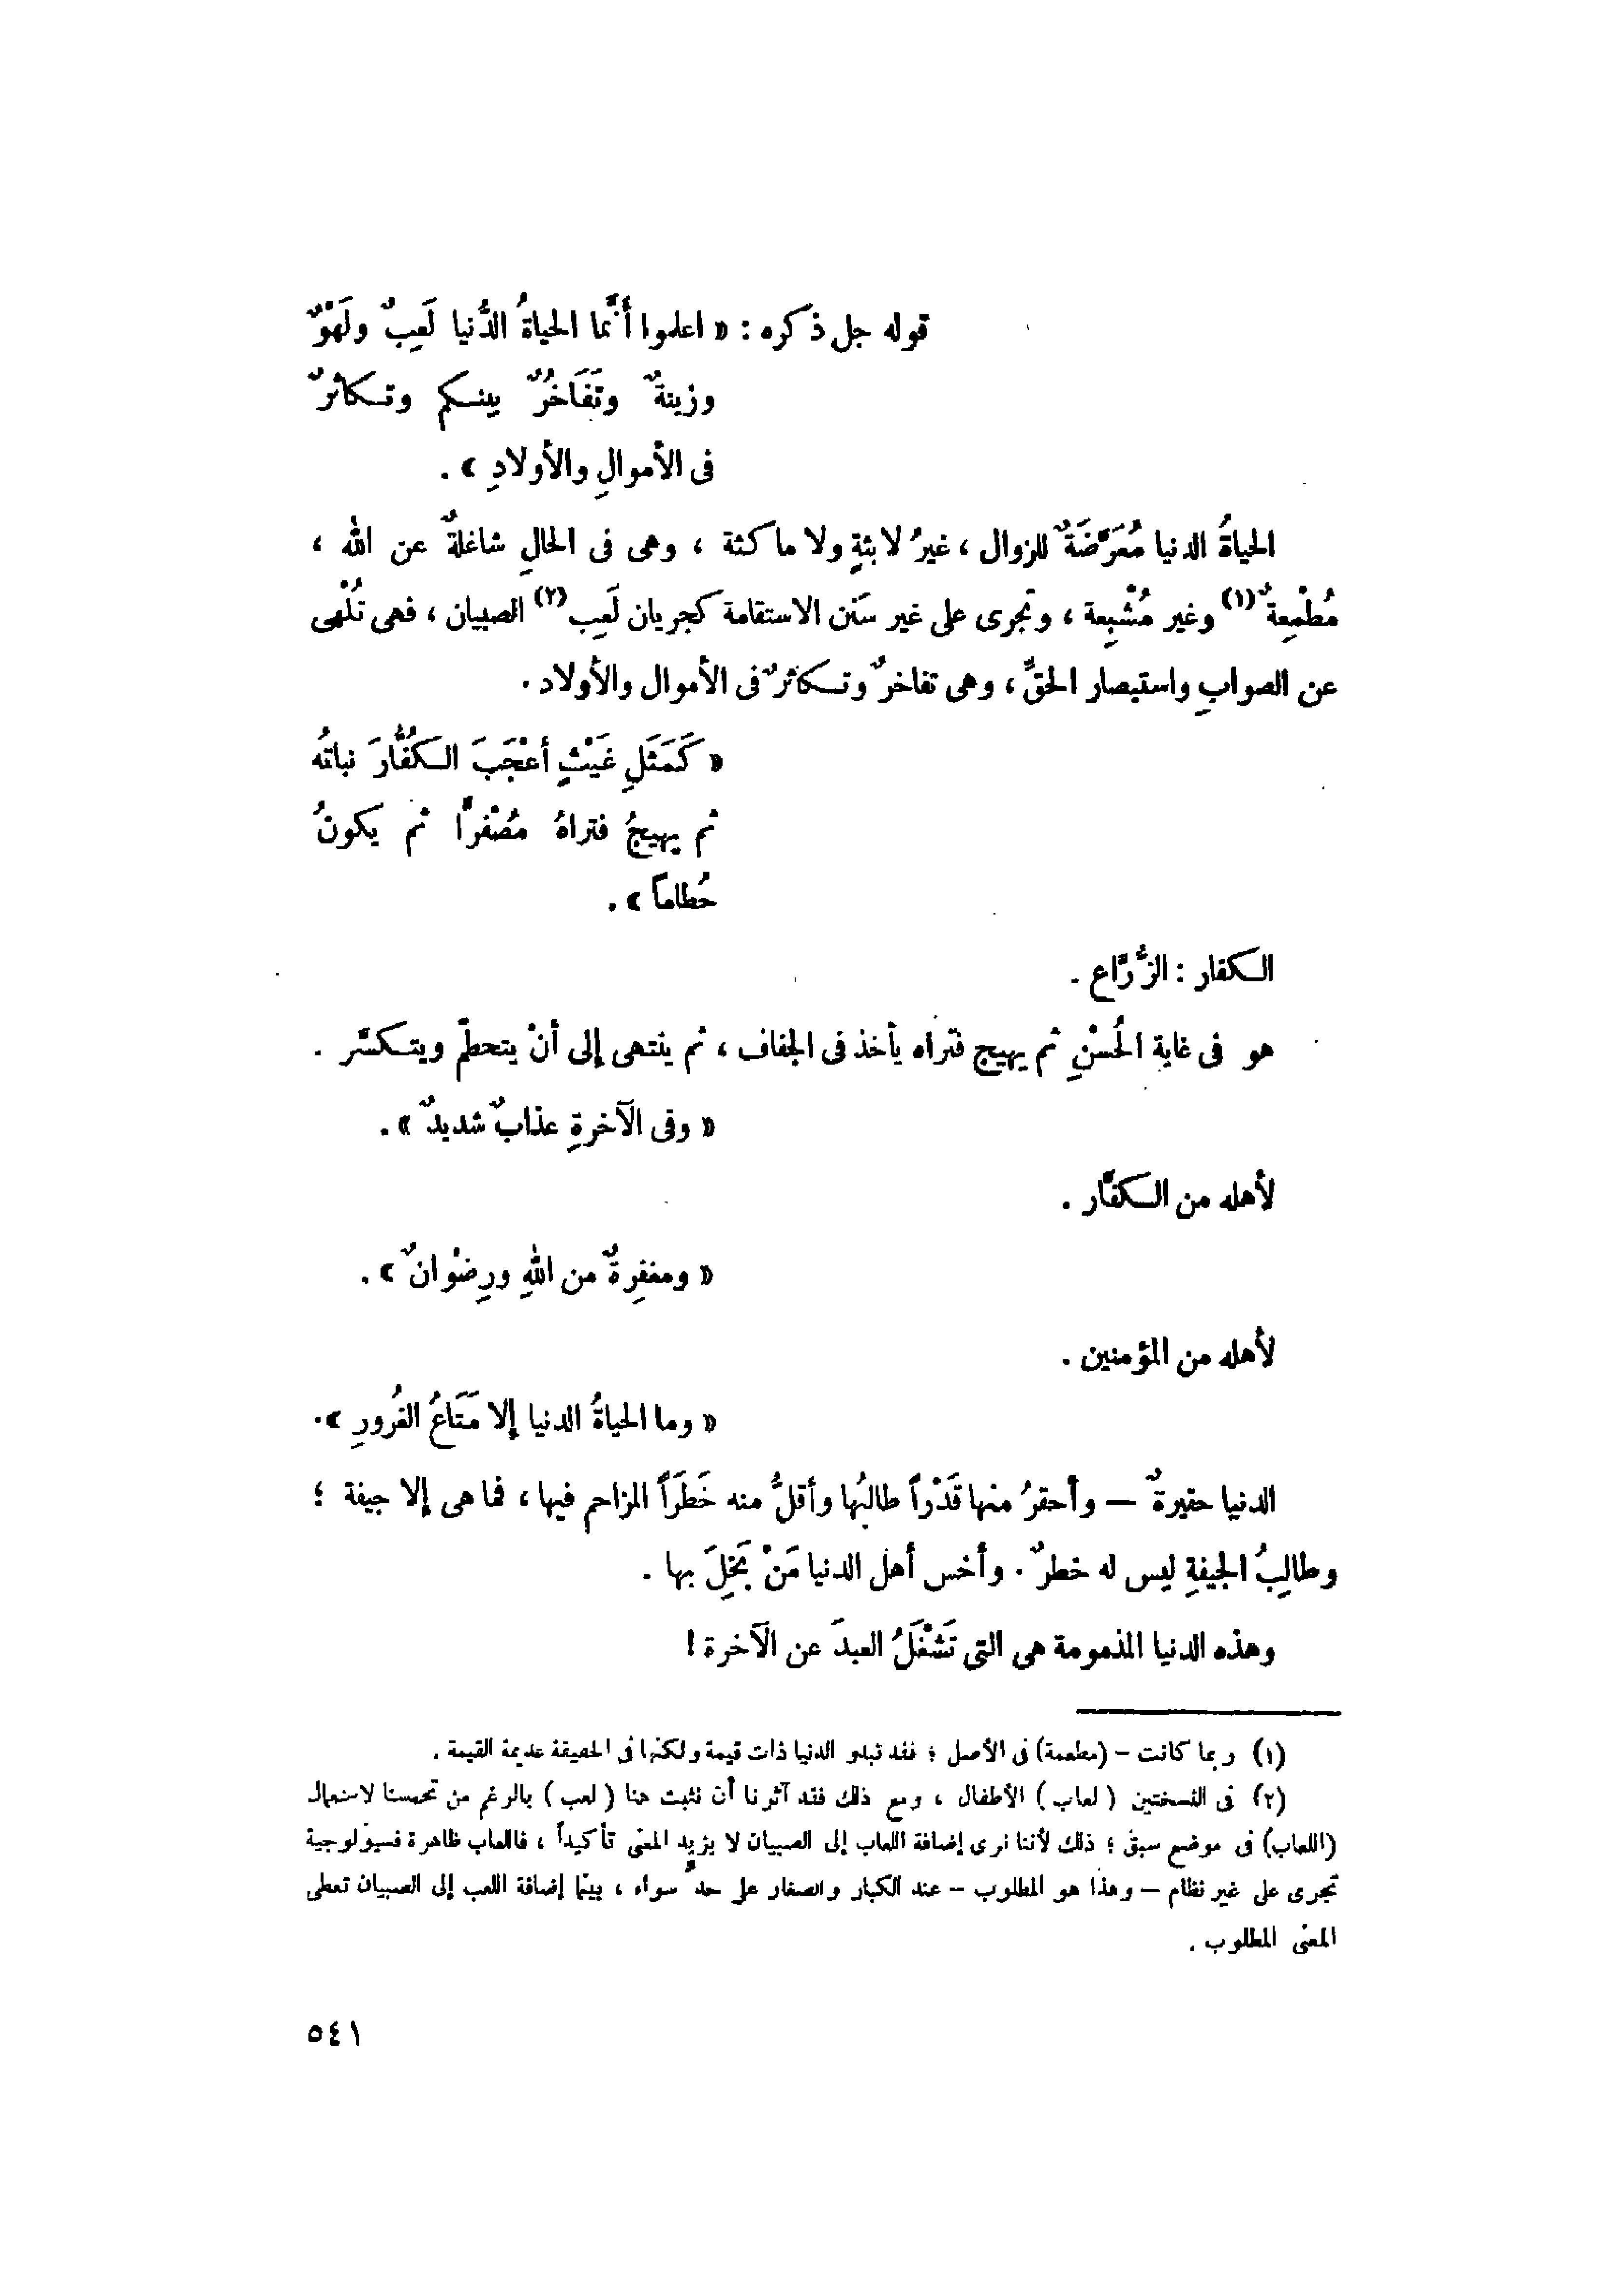 قوله جل ذكره : « اعلموا أَنَّما الحياةُ الدُّنيا لَعِبٌ ولَهْوٌ
وزينةٌ وتَفَاخُرٌ بينـكم وتـكاثرٌ
فى الأموالِ والأولادِ » .
الحياةُ الدنيا مُعَرَّضَةٌ للزوال ، غيرُ لابثةٍ ولا ماكثة ، وهى فى الحالِ شاغلةٌ عن الله ،
مُطْمِعةٌ (١) وغير مُشْبِعة ، وتجرى على غير سَنن الاستقامة كجريان لَعِب (٢) الصبيان ، فهى تُلْهى
عن الصوابِ واستبصار الحقِّ ، وهى تفاخرٌ وتـكاثرٌ فى الأموال والأولاد .
« كَمَثَلِ غَيْثٍ أعْجَبَ الـكُفَّارَ نباتُه
ثم يهيجُ فتراهُ مُصْفرًّا ثم يكونُ
حُطاماً » .
الـكفار : الزُّرَّاع .
هو فى غاية الحُسْنِ ثم يهيج فتراه يأخذ فى الجفاف ، ثم ينتهى إلى أنْ يتحطَّم ويتـكسَّر .
« وفى الآخرةِ عذابٌ شديدٌ » .
لأهله من الـكفَّار .
« ومغفِرةٌ من اللهِ ورِضْوانٌ » .
لأهله من المؤمنين .
« وما الحياةُ الدنيا إلا مَتَاعُ الغُرورِ » .
الدنيا حقيرةٌ — وأحقرُ منها قَدْراً طالبُها وأقلُّ منه خَطَرَاً المزاحم فيها ، فما هى إلا جيفة ؛
وطالِبُ الجيفةِ ليس له خطرٌ . وأخس أهل الدنيا مَنْ بَخِلَ بها .
وهذه الدنيا المذمومة هى التى تَشْغَلُ العبدَ عن الآخرة !
(١) وبما كانت – (مطعمة) فى الأصل ؛ فقد تبدو الدنيا ذات قيمة ولكنها فى الحقيقة عديمة القيمة .
(٢) فى النسختين ( لعاب ) الأطفال ، ومع ذلك فقد آثرنا أن نثبت هنا ( لعب ) بالرغم من تحمسنا لاستعمال
(اللعاب) فى موضع سبق ؛ ذلك لأننا نرى إضافة اللعاب إلى الصبيان لا يزيد المعنى تأكيداً ، فاللعاب ظاهرة فسيولوجية
تجرى على غير نظام — وهذا هو المطلوب – عند الكبار والصغار على حدٍّ سواء ، بينما إضافة اللعب إلى الصبيان تعطى
المعنى المطلوب .
٥٤١